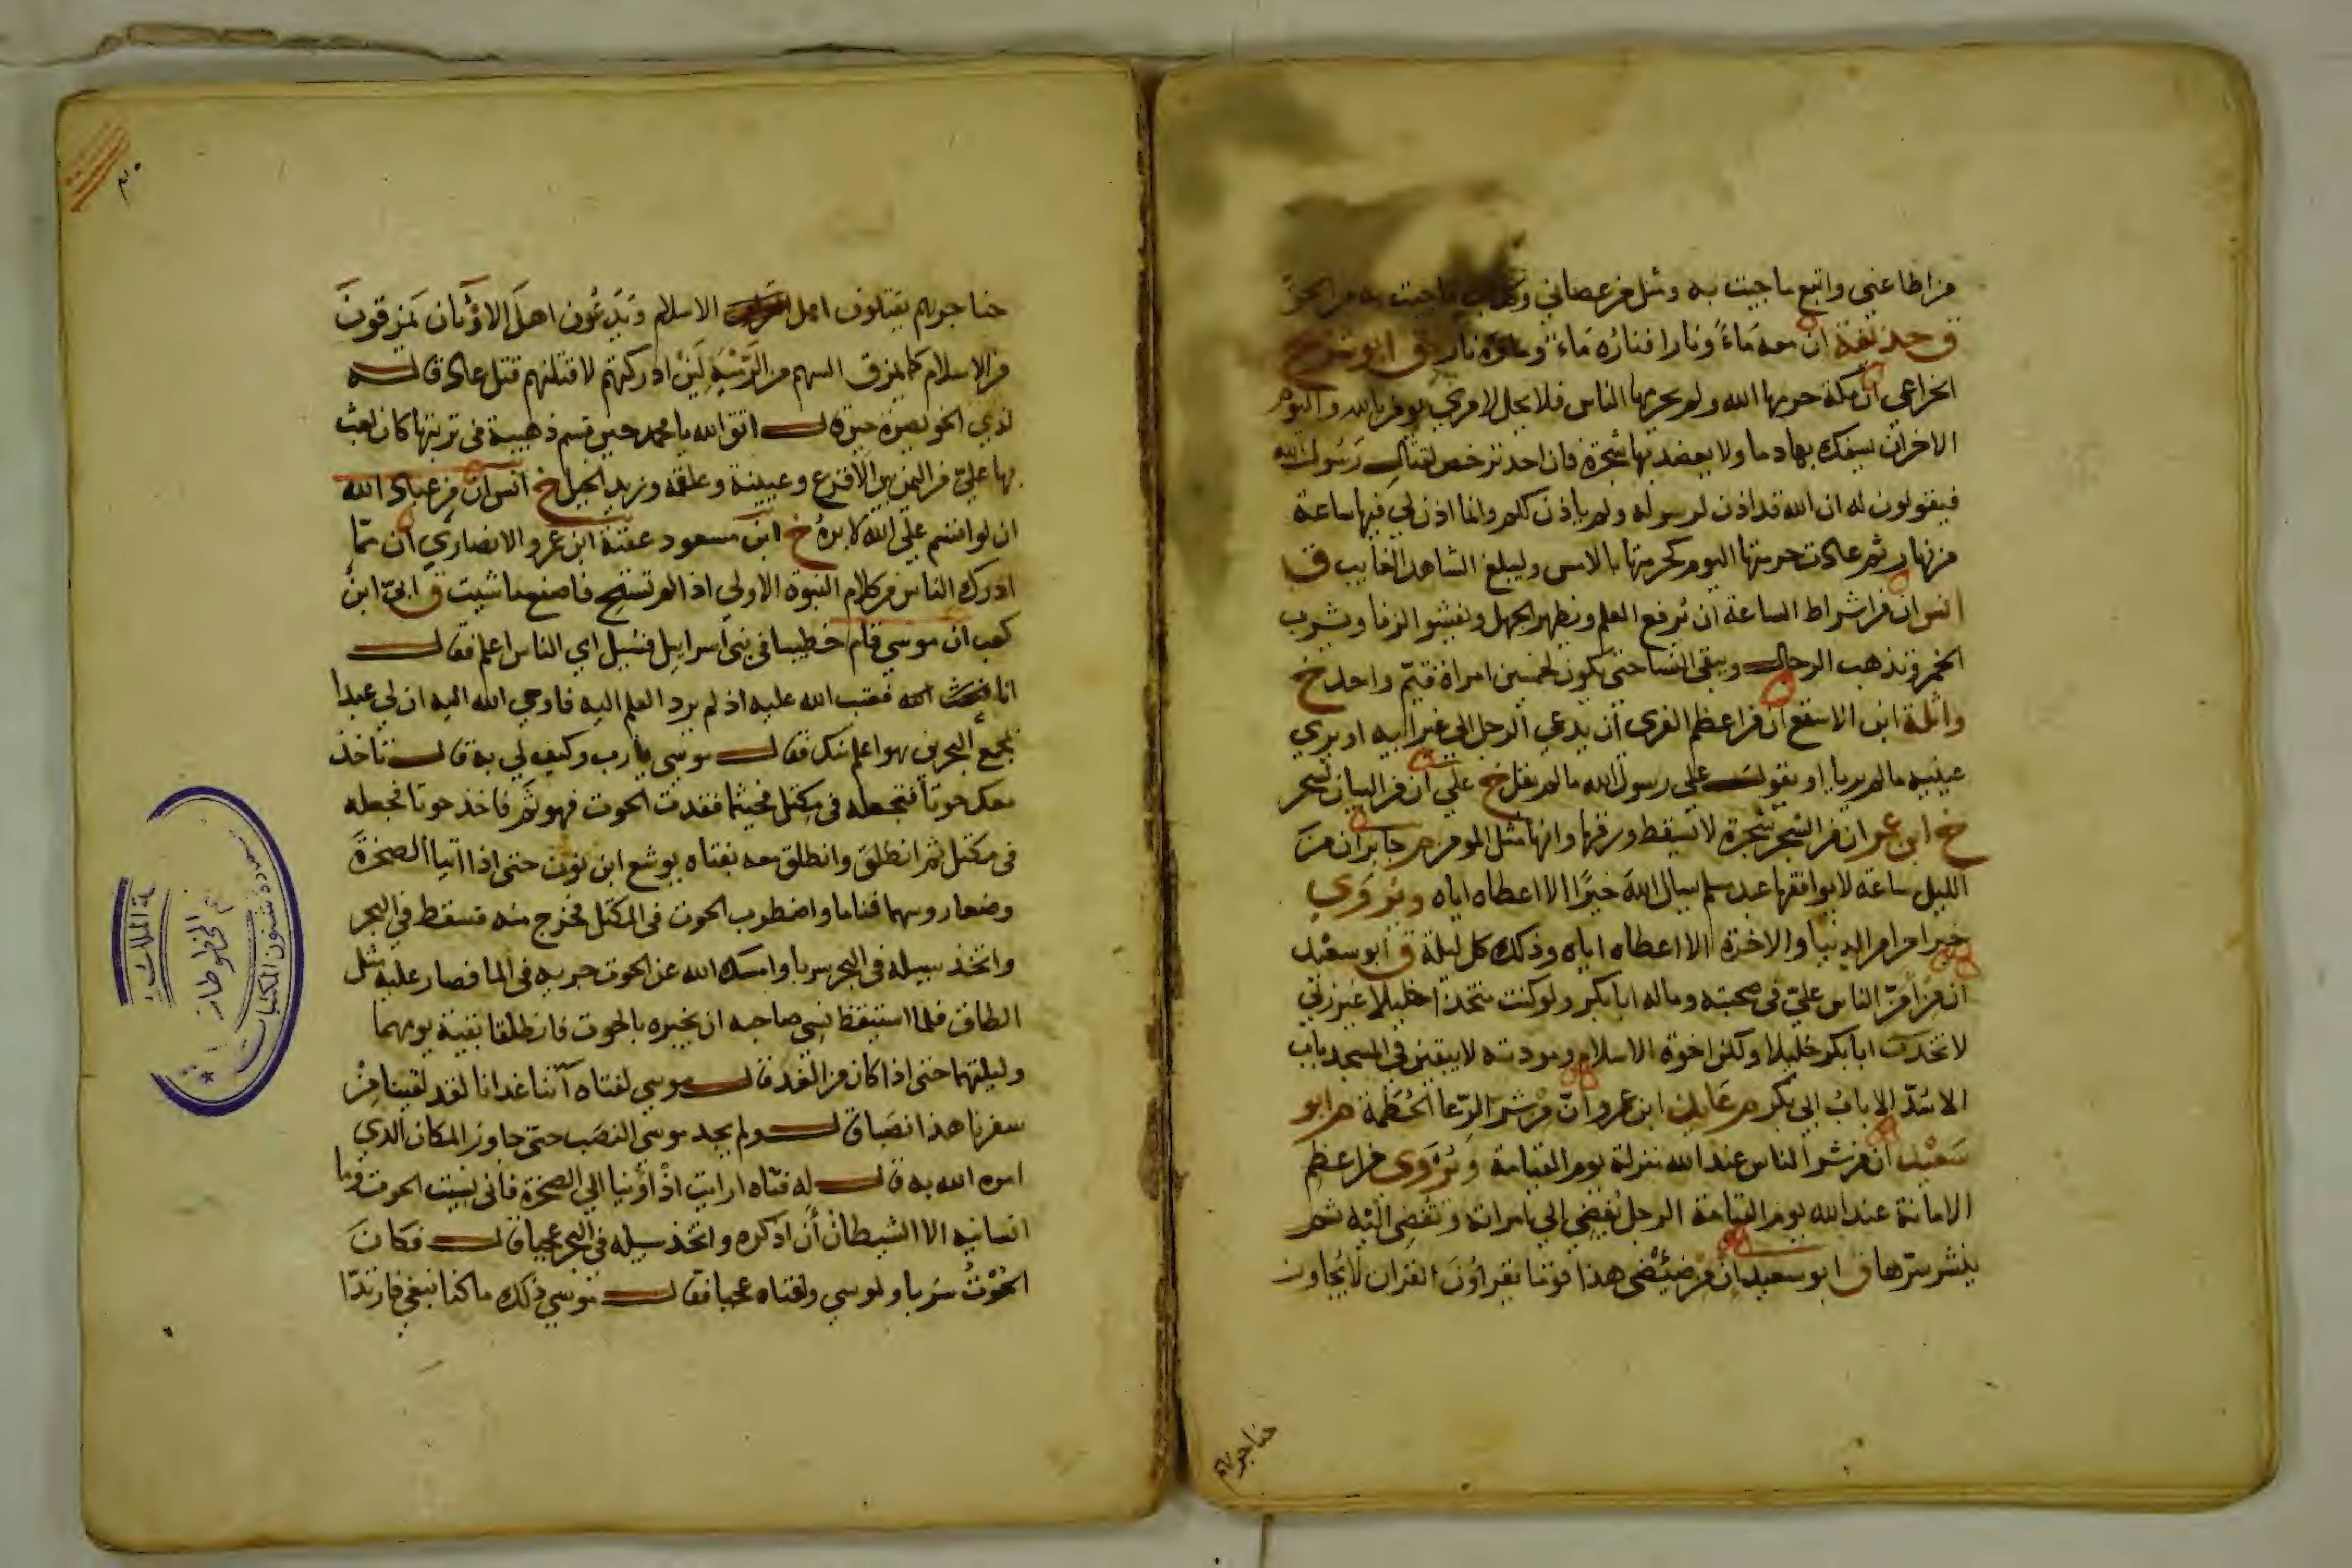 من اطاعني واتبع ما جيت به ومثل من عصاني وكذب بما جيت به من الحق
ق حذيفة ان معه مَاءً ونارا فنارُه مَاءٌ وماؤه نار ق ابو شريح
الخزاعي ان مكة حرمها الله ولم يحرمها الناس فلا يحل لامري يومن بالله واليوم
الاخر ان يسفك بها دما ولا يعضد بها شجرة فان احد ترخص لقتال رَسُول الله
فيقولون له ان الله قد اذن لرسوله ولم ياذن لكم وانما اذن لي فيها ساعة
من نهار ثم عادت حرمتها اليوم كحرمتها بالامس وليبلغ الشاهد الغايب ق
انس ان من اشراط الساعة ان يُرفع العلم ويظهر الجهل ويفشو الزنا ويشرب
الخمر وتذهب الرجال ويبقى النسا حتى يكون لخمسين امراة قيّم واحد خ
واثلة ابن الاسقع ان من اعظم الفرى ان يدعي الرجل الى غير ابيه او يري
عينيه ما لم يريا او يقول على رسول الله ما لم يقل خ علي ان من البيان لسحر
خ ابن عمر ان من الشجر شجرة لا تسقط ورقها وانها مثل المومن م جابر ان منَ
الليل ساعة لا يوافقها عبد مسلم يسال اللهَ خيرًا الا اعطاه اياه ويُروَي
خيرا من امر الدنيا والاخرة الا اعطاه اياه وذلك كل ليلة ق ابو سعيد
ان من امنّ الناس عليّ في صحبته وماله ابا بكر ولو كنت متخذا خليلا غير ربي
لاتخذت ابا بكر خليلا ولكن اخوة الاسلام ومودته لا يبقين في المسجد باب
الا سُدّ الا بابُ ابي بكر م عايذ ابن عمرو انّ من شر الرِّعا الحُطَمة م ابو
سَعيد ان من شر الناس عند الله منزلة يوم القيامة ويُروَى من اعظم
الامانة عند الله يوم القيامة الرجل يُفضي الى امراته وتُفضِى اليْه ثم
ينشر سرّها ق ابو سعيد ان من ضِئضِئ هذا قوما يقراؤنَ القران لا يُجاوز
حناجر
حناجرهم يقتلون اهل الاسلام ويَدعُون اهلَ الاوْثان يَمرقونَ
من الاسلام كما يمرق السهم من الرَّمْيَةِ لئن ادركتهم لاقتلنهم قتل عاد قاله
لذي الخويصرة حين قال اتق الله يا محمد حين قسم ذهبية في تربتها كان بعث
بها عليّ من اليمن بين الاقرع وعيينة وعلقمة وزيد الخيل خ انس ان من عباد الله
ان لو اقسم على الله لابره خ ابن مسعود عقبة ابن عمرو الانصاري ان ممّا
ادرك الناس من كلام النبوة الاولى اذا لم تستح فاصنع ما شيت ق ابيّ ابن
كعب ان موسى قام خطيبا في بني اسراييل فسُيل اي الناس اعلم فقال
انا فعتب الله عليه اذ لم يرد العلم اليه فاوحى الله اليه ان لي عبدا
بمجمع البحرين هو اعلم منك فقال موسى يا رب وكيف لي به قال تاخذ
معك حوتا فتجعله في مكتل فحيثما فقدت الحوت فهو ثَمّ فاخذ حوتا فجعله
في مكتل ثم انطلق وانطلق معه بفتاه يوشع ابن نون حتى اذا اتيا الصخرة
وضعا روسهما فناما واضطرب الحوت في المكتل فخرج منه فسقط في البحر
واتخذ سبيله في البحر سربا وامسك الله عن الحوت جريه في الما فصار عليه مثل
الطاق فلما استيقظ نسي صاحبه ان يخبره بالحوت فانطلقا بقية يومهما
وليلتهما حتى اذا كان من الغد قال موسى لفتاه آتنا غدانا لقد لقينا مِنْ
سفرنا هذا نصَبا قال ولم يجد موسى النصَب حتى جاوز المكان الذي
امره الله به قال له فتاه ارايت اذْ اوينا الى الصخرة فاني نسيت الحوت وما
انسانيه الا الشيطان أن اذكره واتخذ سبيله في البحر عجبا قال فكانَ
الحُوْتُ سَربا ولموسى ولفتاه عجبا فقال موسى ذلك ما كنا نبغي فارتدّا
المخطوطات